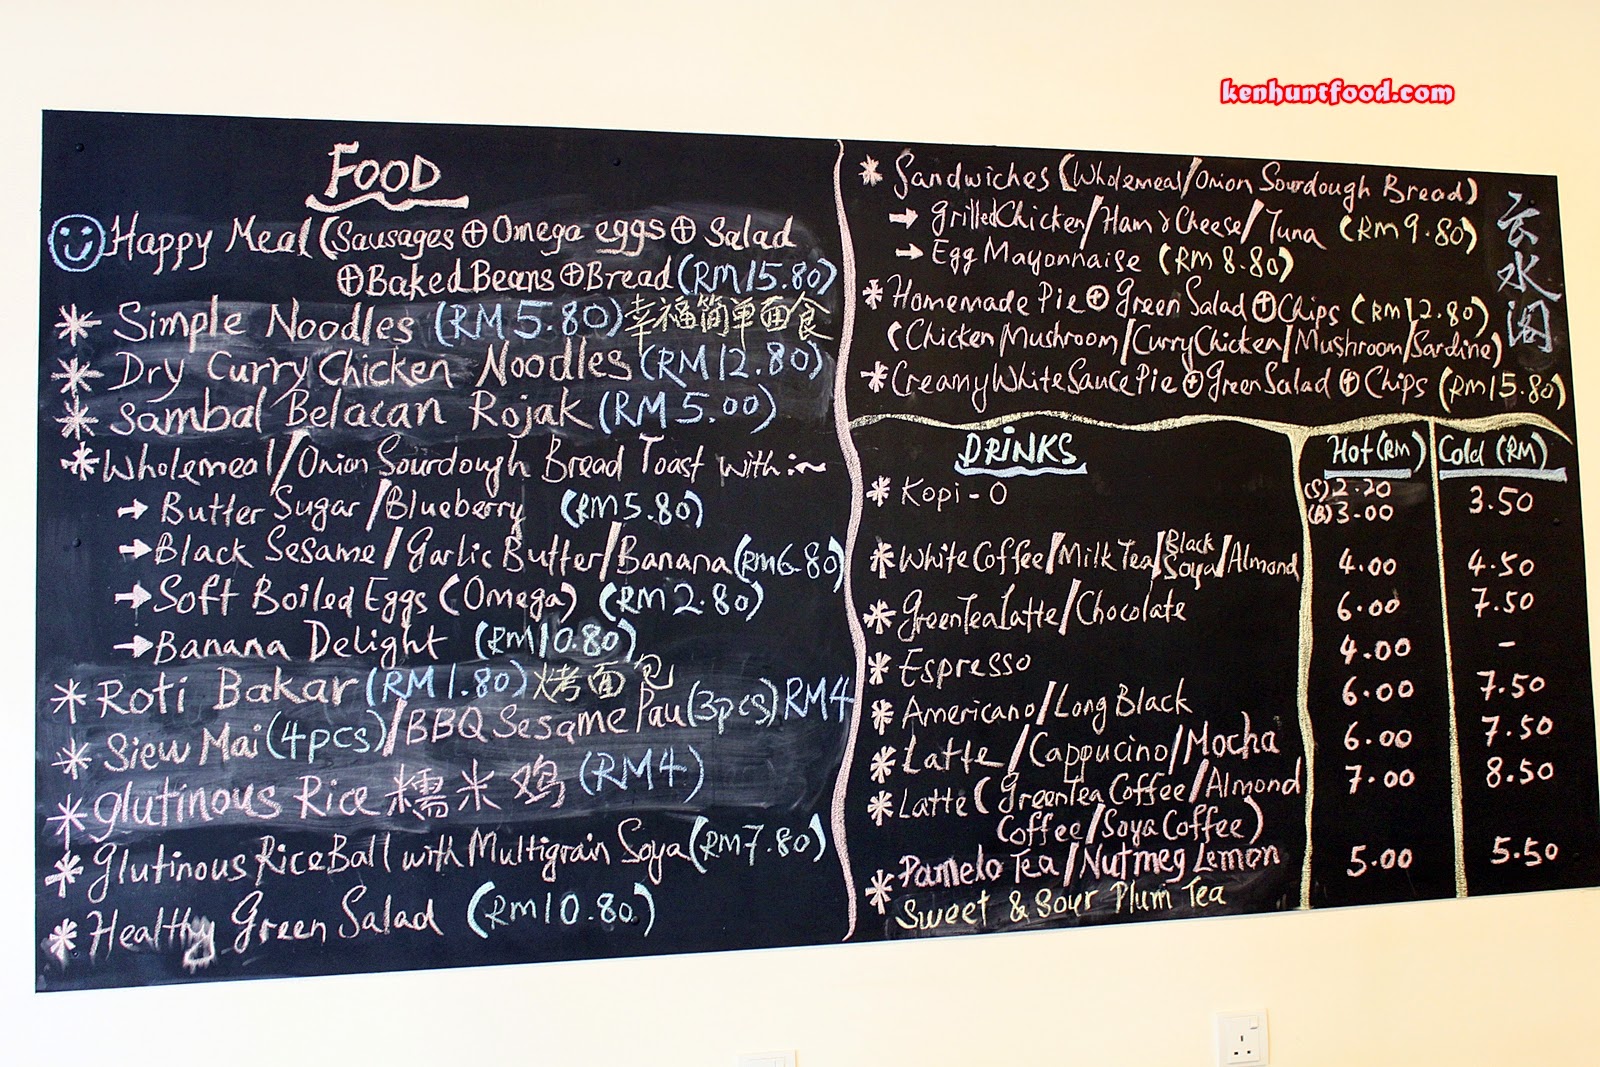 kenhuntfood.com
FOOD
Happy Meal (Sausages ⊕ Omega eggs ⊕ Salad
⊕ Baked Beans ⊕ Bread (RM15.80)
* Simple Noodles (RM5.80) 幸福简单面食
* Dry Curry Chicken Noodles (RM12.80)
* Sambal Belacan Rojak (RM5.00)
* Wholemeal/Onion Sourdough Bread Toast with:~
→ Butter Sugar/Blueberry (RM5.80)
→ Black Sesame/Garlic Butter/Banana (RM6.80)
→ Soft Boiled Eggs (Omega) (RM2.80)
→ Banana Delight (RM10.80)
* Roti Bakar (RM1.80) 烤面包
* Siew Mai (4pcs)/BBQ Sesame Pau (3pcs) RM4
* Glutinous Rice 糯米鸡 (RM4)
* Glutinous Rice Ball with Multigrain Soya (RM7.80)
* Healthy Green Salad (RM10.80)
* Sandwiches (Wholemeal/Onion Sourdough Bread)
→ Grilled Chicken/Ham & Cheese/Tuna (RM9.80)
→ Egg Mayonnaise (RM8.80)
* Homemade Pie ⊕ Green Salad ⊕ Chips (RM12.80)
(Chicken Mushroom/Curry Chicken/Mushroom/Sardine)
* Creamy White Sauce Pie ⊕ Green Salad ⊕ Chips (RM15.80)
云水阁
DRINKS Hot (RM) Cold (RM)
* Kopi-O (S) 2.20 3.50
(B) 3.00
* White Coffee/Milk Tea/Black Soya/Almond 4.00 4.50
* Green Tea Latte/Chocolate 6.00 7.50
* Espresso 4.00 -
* Americano/Long Black 6.00 7.50
* Latte/Cappucino/Mocha 6.00 7.50
* Latte (Green Tea Coffee/Almond 7.00 8.50
Coffee/Soya Coffee)
* Pamelo Tea/Nutmeg Lemon 5.00 5.50
Sweet & Sour Plum Tea